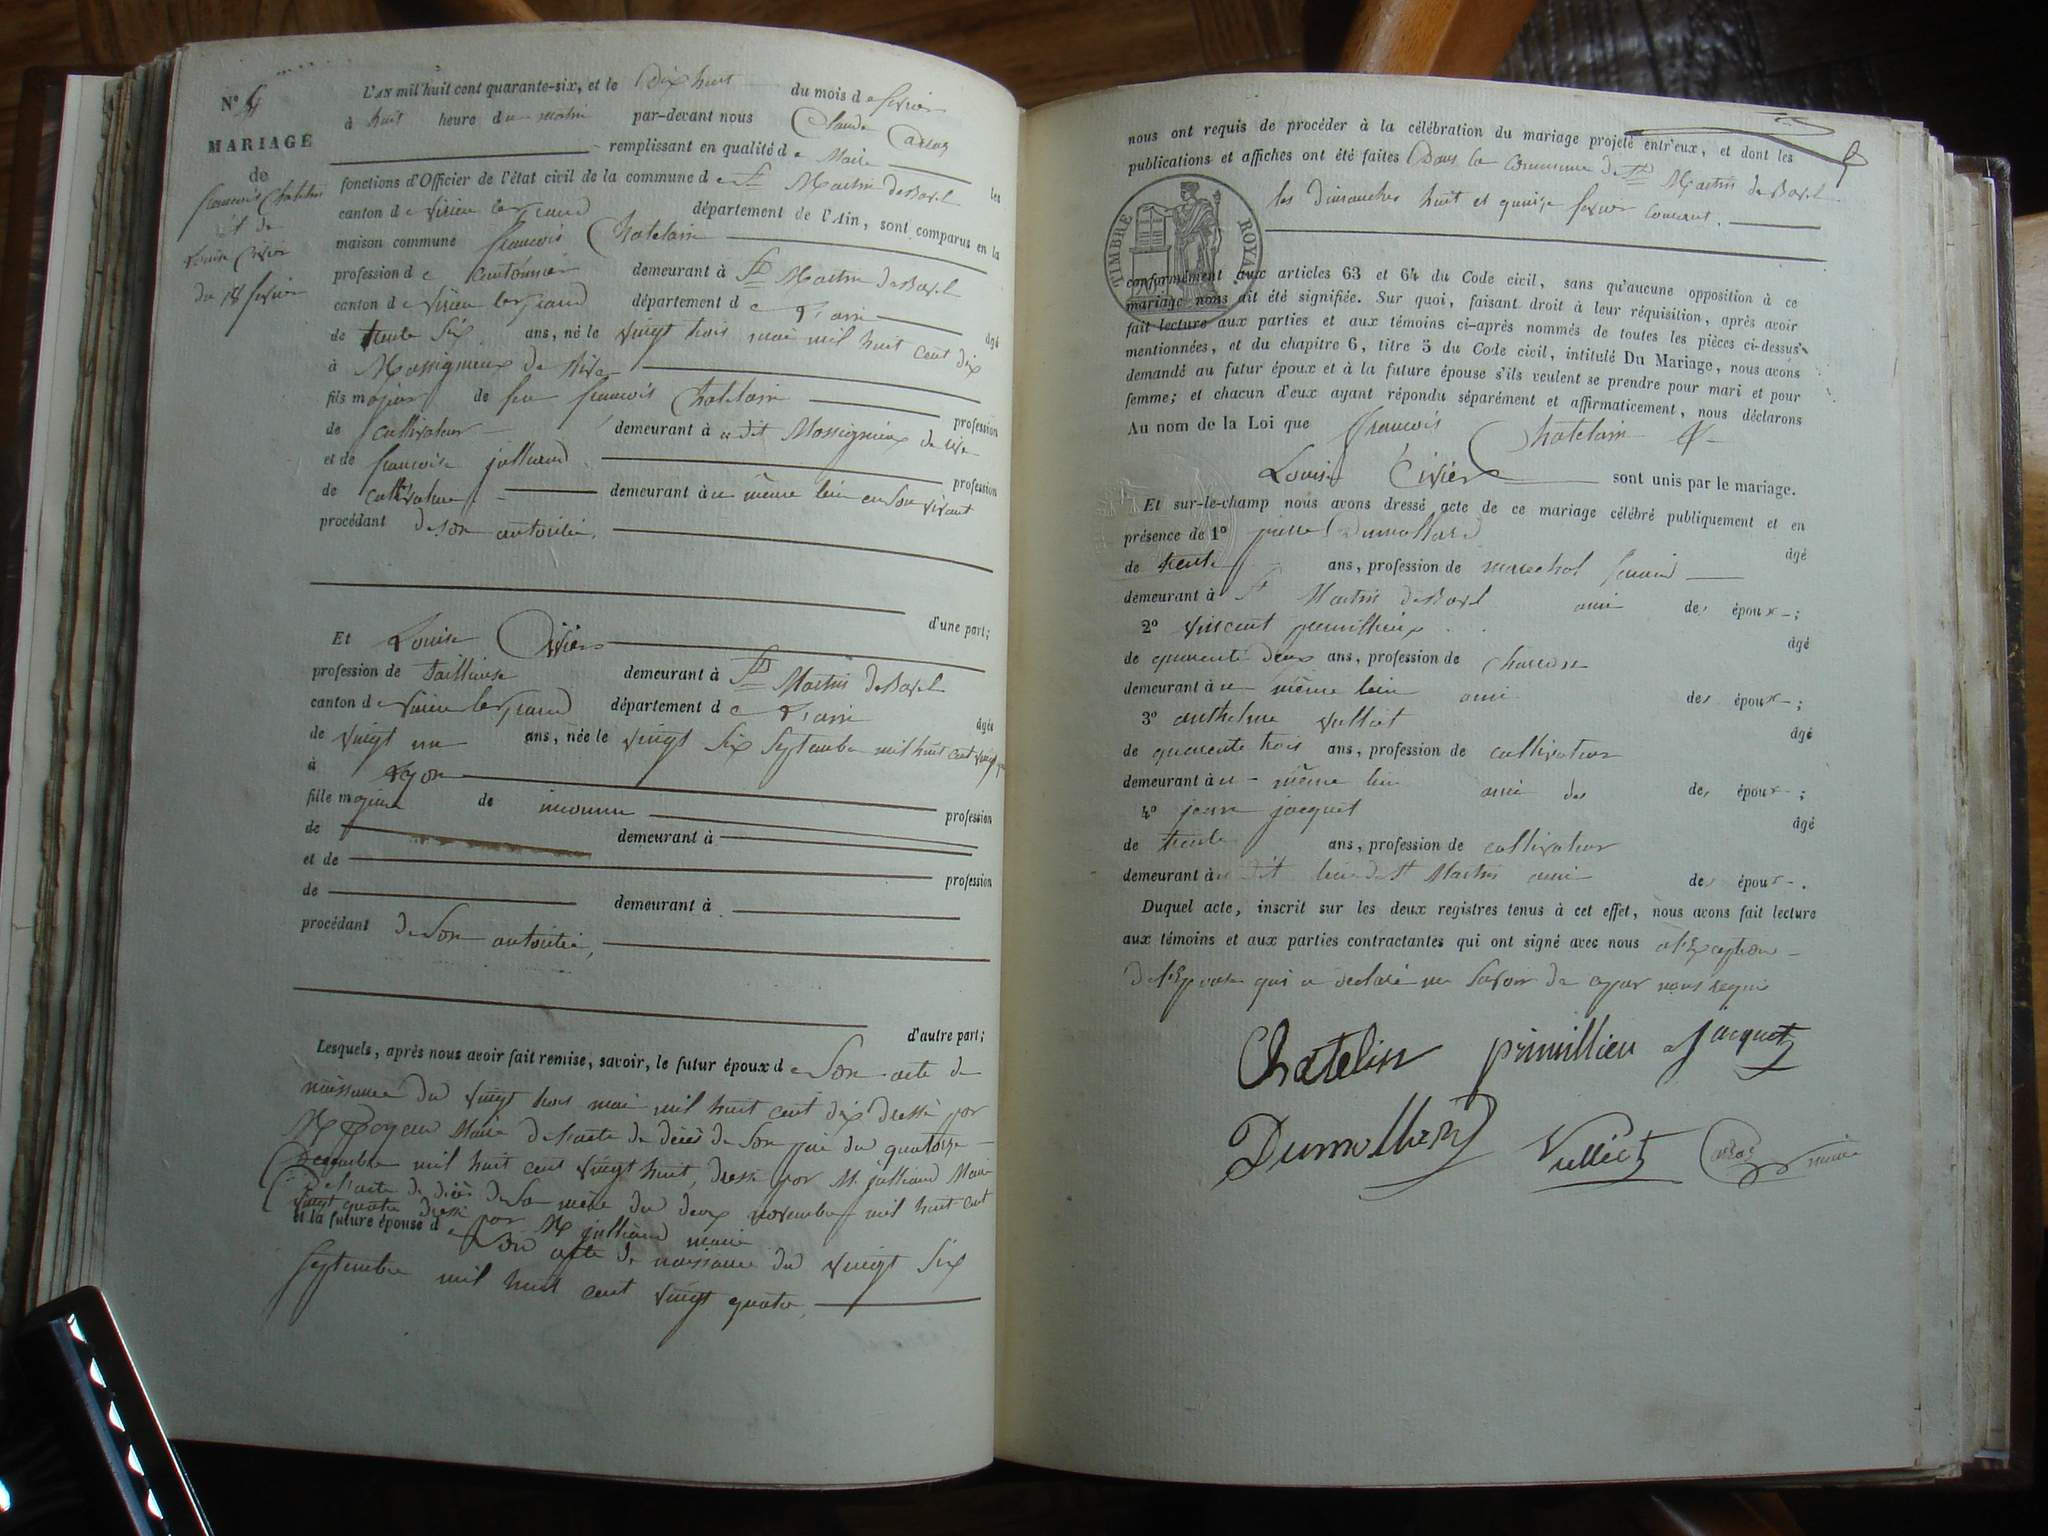 N° 4
MARIAGE
de
françois Chatelain
et de
Louise Civier
du 18 fevrier
L'AN mil huit cent quarante-six, et le Dix huit du mois de fevrier
à huit heure du matin par-devant nous Claude
remplissant en qualité de Maire les
fonctions d'Officier de l'état civil de la commune de St Martin de Bavel
canton de virieu le grand département de l'Ain, sont comparus en la
maison commune françois Chatelain
profession de cantonnier demeurant à St Martin de Bavel
canton de virieu le grand département de L'ain âgé
de trente six ans, né le vingt trois mai mil huit cent dix
à Massignieux de Rives
fils majeur de feu françois Chatelain profession
de cultivateur demeurant à u dit Massignieux de rive
et de françoise julliand profession
de cultivateur demeurant à u même lieu en son vivant
procédant de son autorité,
d'une part;
Et Louise Civier
profession de Tailleuse demeurant à St Martin de Bavel
canton de virieu le grand département de L'ain âgée
de vingt un ans, née le vingt six septembre mil huit cent vingt
à Lyon
fille majeure de inconnu profession
de demeurant à
et de profession
de demeurant à
procédant de son autorité,
d'autre part;
Lesquels, après nous avoir fait remise, savoir, le futur époux de son acte de
naissance du vingt trois mai mil huit cent dix dressé par
M Maire de l'acte de décès de son père du quatorze
Decembre mil huit cent vingt huit, dressé par M. julliand Maire
De l'acte de décès de sa mère du deux novembre mil huit cent
vingt quatre dressé par M julliand maire
et la future épouse de son acte de naissance du vingt six
septembre mil huit cent vingt quatre,
nous ont requis de procéder à la célébration du mariage projeté entr'eux, et dont les
publications et affiches ont été faites Dans la commune de St Martin de Bavel
les dimanches huit et quinze fevrier courant.
TIMBRE ROYAL
conformément aux articles 63 et 64 du Code civil, sans qu'aucune opposition à ce
mariage nous ait été signifiée. Sur quoi, faisant droit à leur réquisition, après avoir
fait lecture aux parties et aux témoins ci-après nommés de toutes les pièces ci-dessus
mentionnées, et du chapitre 6, titre 5 du Code civil, intitulé Du Mariage, nous avons
demandé au futur époux et à la future épouse s'ils veulent se prendre pour mari et pour
femme; et chacun d'eux ayant répondu séparément et affirmativement, nous déclarons
Au nom de la Loi que françois Chatelain &
Louise Civier sont unis par le mariage.
Et sur-le-champ nous avons dressé acte de ce mariage célébré publiquement et en
présence de 1° pierre Dumollard âgé
de trente ans, profession de marechal ferrand
demeurant à St Martin de Bavel ami des époux;
2° vincent primillieu âgé
de quarente deux ans, profession de charron
demeurant à u même lieu ami des époux;
3° anthelme vulliet âgé
de quarente trois ans, profession de cultivateur
demeurant à u même lieu ami des des époux;
4° jean jacquet âgé
de trente ans, profession de cultivateur
demeurant à u dit lieu de St Martin ami des époux.
Duquel acte, inscrit sur les deux registres tenus à cet effet, nous avons fait lecture
aux témoins et aux parties contractantes qui ont signé avec nous a l'Exception
de l'Epouse qui a déclaré ne savoir de ce par nous requis
Chatelin primillieu jacquet
Dumollard Vulliet maire